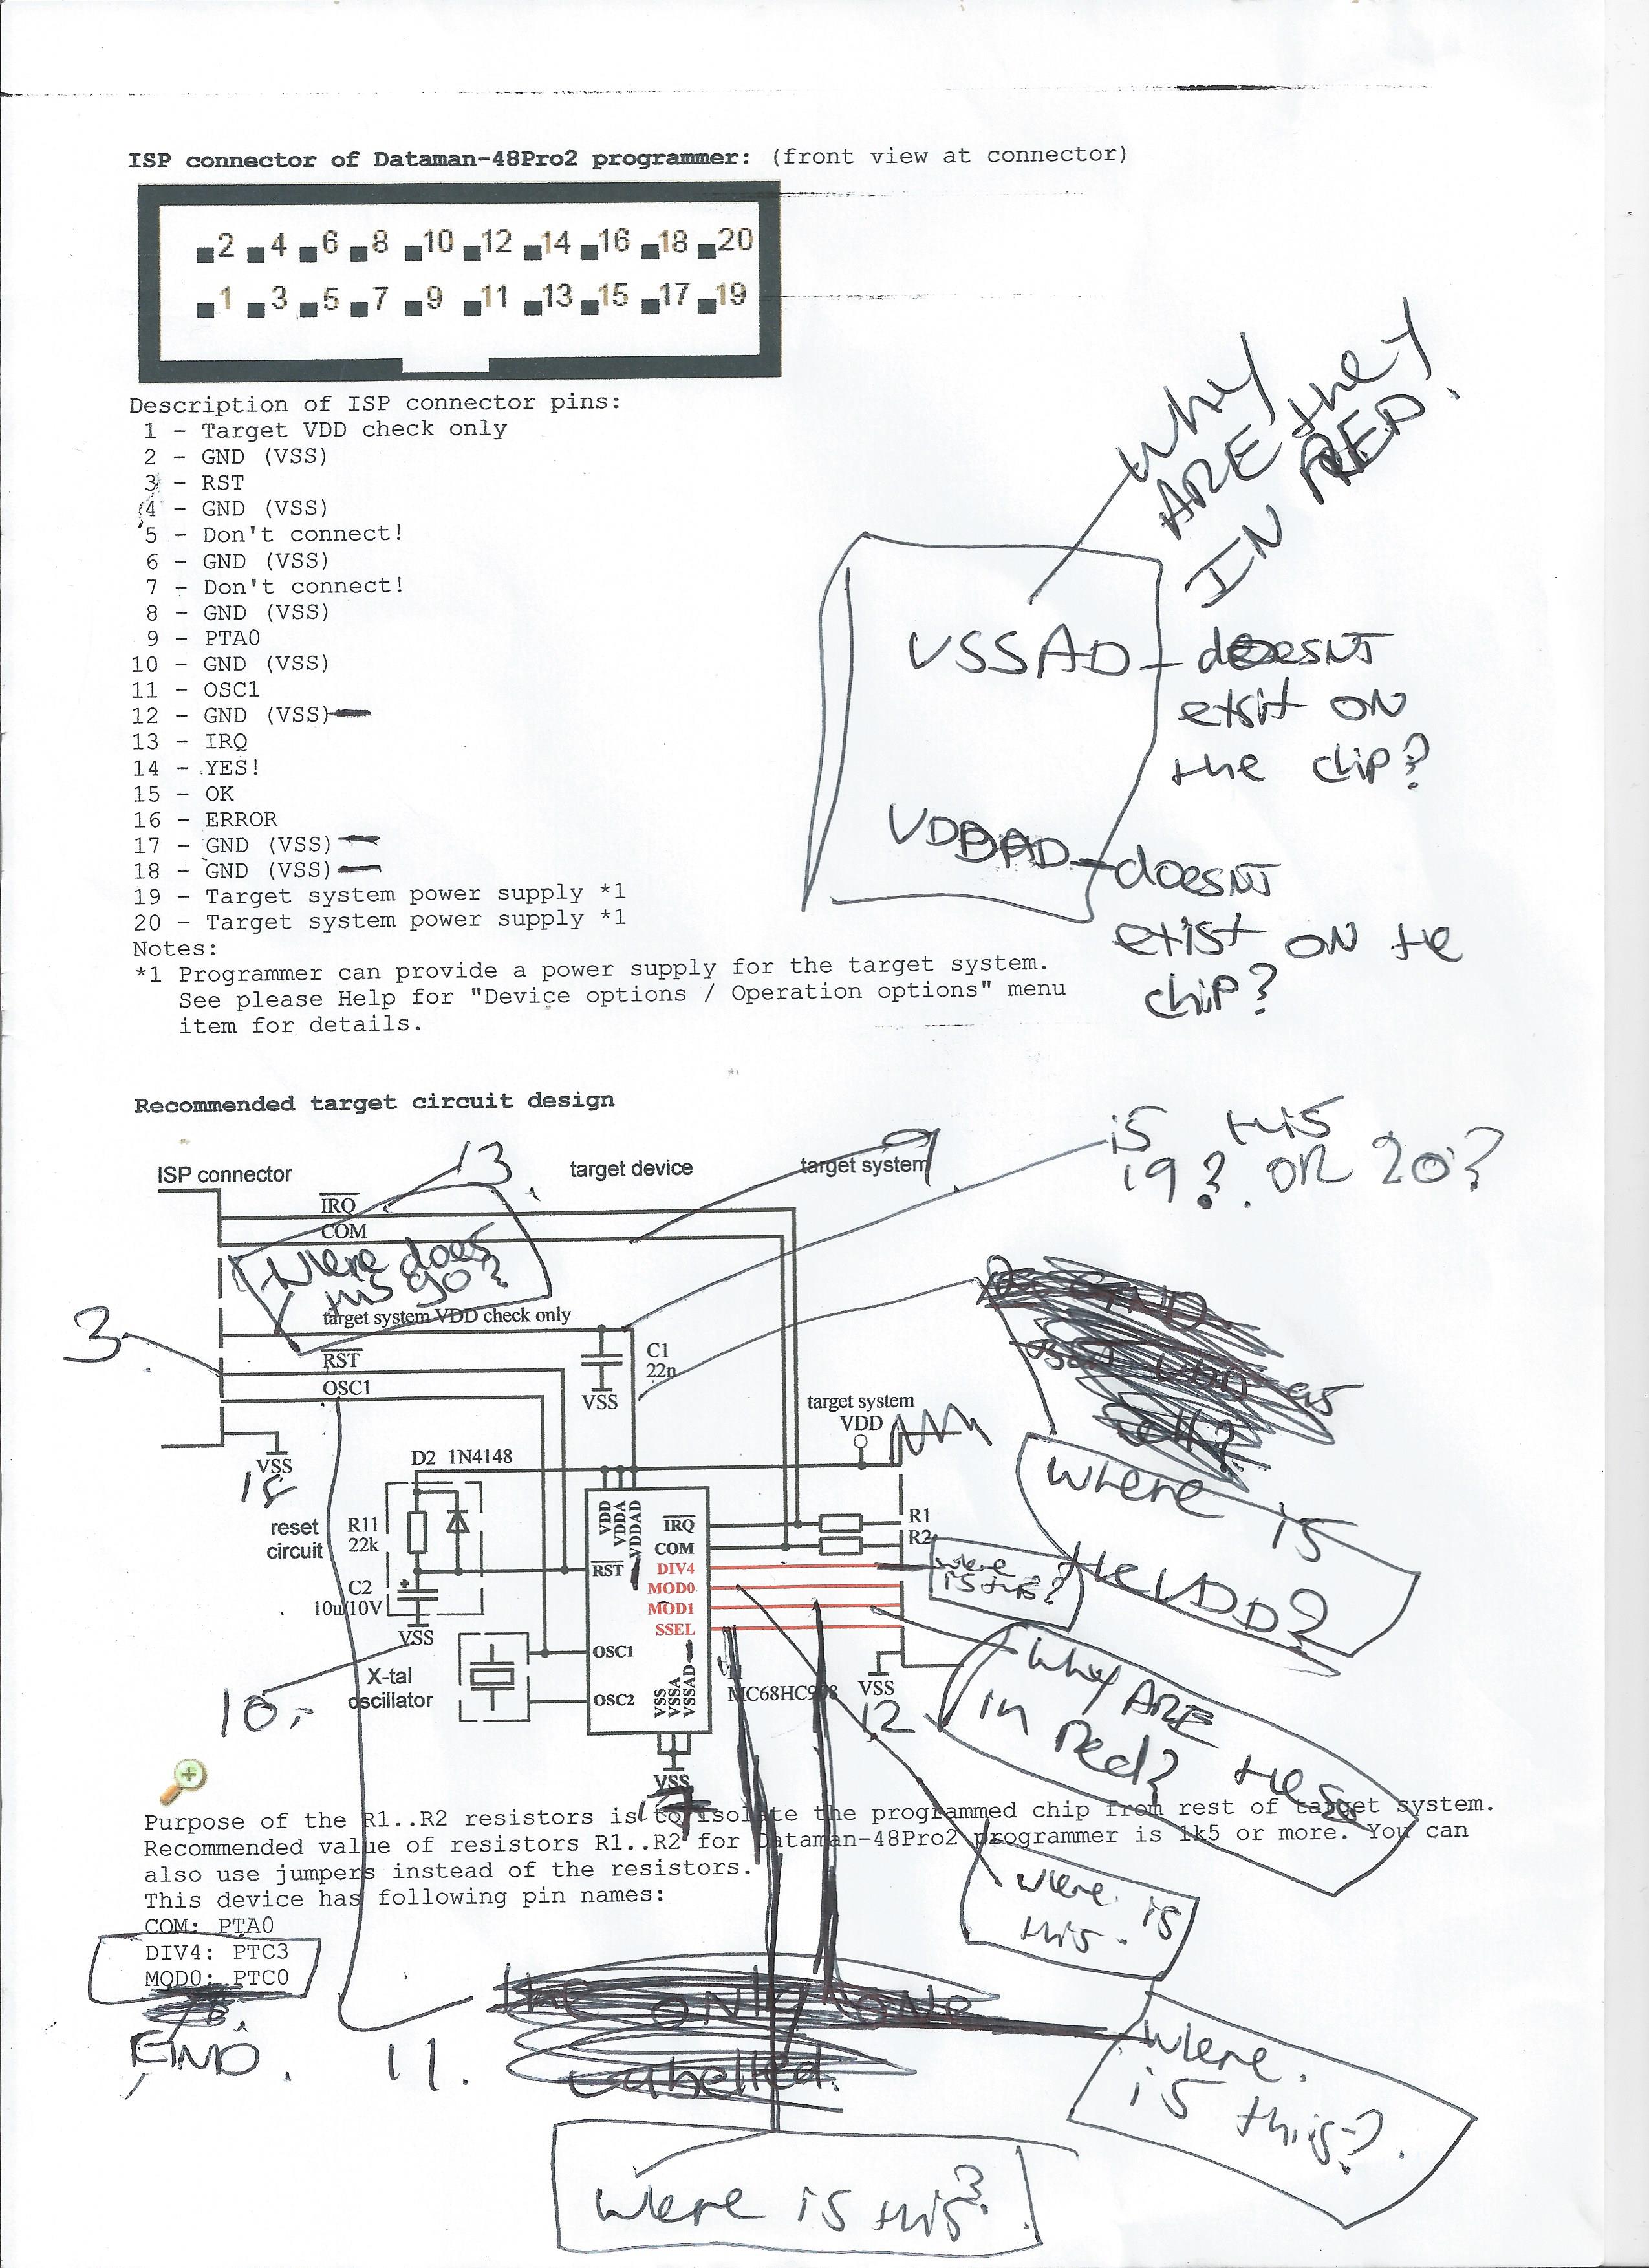 ISP connector of Dataman-48Pro2 programmer: (front view at connector)
2 4 6 8 10 12 14 16 18 20
1 3 5 7 9 11 13 15 17 19
Description of ISP connector pins:
1 - Target VDD check only
2 - GND (VSS)
3 - RST
4 - GND (VSS)
5 - Don't connect!
6 - GND (VSS)
7 - Don't connect!
8 - GND (VSS)
9 - PTA0
10 - GND (VSS)
11 - OSC1
12 - GND (VSS)
13 - IRQ
14 - YES!
15 - OK
16 - ERROR
17 - GND (VSS)
18 - GND (VSS)
19 - Target system power supply *1
20 - Target system power supply *1
Notes:
*1 Programmer can provide a power supply for the target system.
See please Help for "Device options / Operation options" menu
item for details.
why
ARE they
IN RED.
VSSAD
doesNT
exsit ON
the chip?
VDDAD
doesNT
exist ON the
chip?
Recommended target circuit design
is this
19? OR 20?
13
9
ISP connector
target device
target system
IRQ
COM
Were does
this go?
target system VDD check only
3
RST
OSC1
C1
22n
VSS
target system
VDD
VSS
18
D2 1N4148
reset
circuit
R11
22k
C2
10u/10V
VSS
10.
X-tal
oscillator
VDD
VDDA
VDDAD
IRQ
COM
RST
DIV4
MOD0
MOD1
SSEL
OSC1
OSC2
VSS
VSSA
VSSAD
R1
R2
VSS
12
VSS
17
where is
the VDD?
were
is this?
Why ARE these
in red?
Purpose of the R1..R2 resistors is to isolate the programmed chip from rest of target system.
Recommended value of resistors R1..R2 for Dataman-48Pro2 programmer is 1k5 or more. You can
also use jumpers instead of the resistors.
This device has following pin names:
COM: PTA0
DIV4: PTC3
MOD0: PTC0
FIND.
11.
the only one
Labelled.
were is
this.
were.
is this?.
were is this?